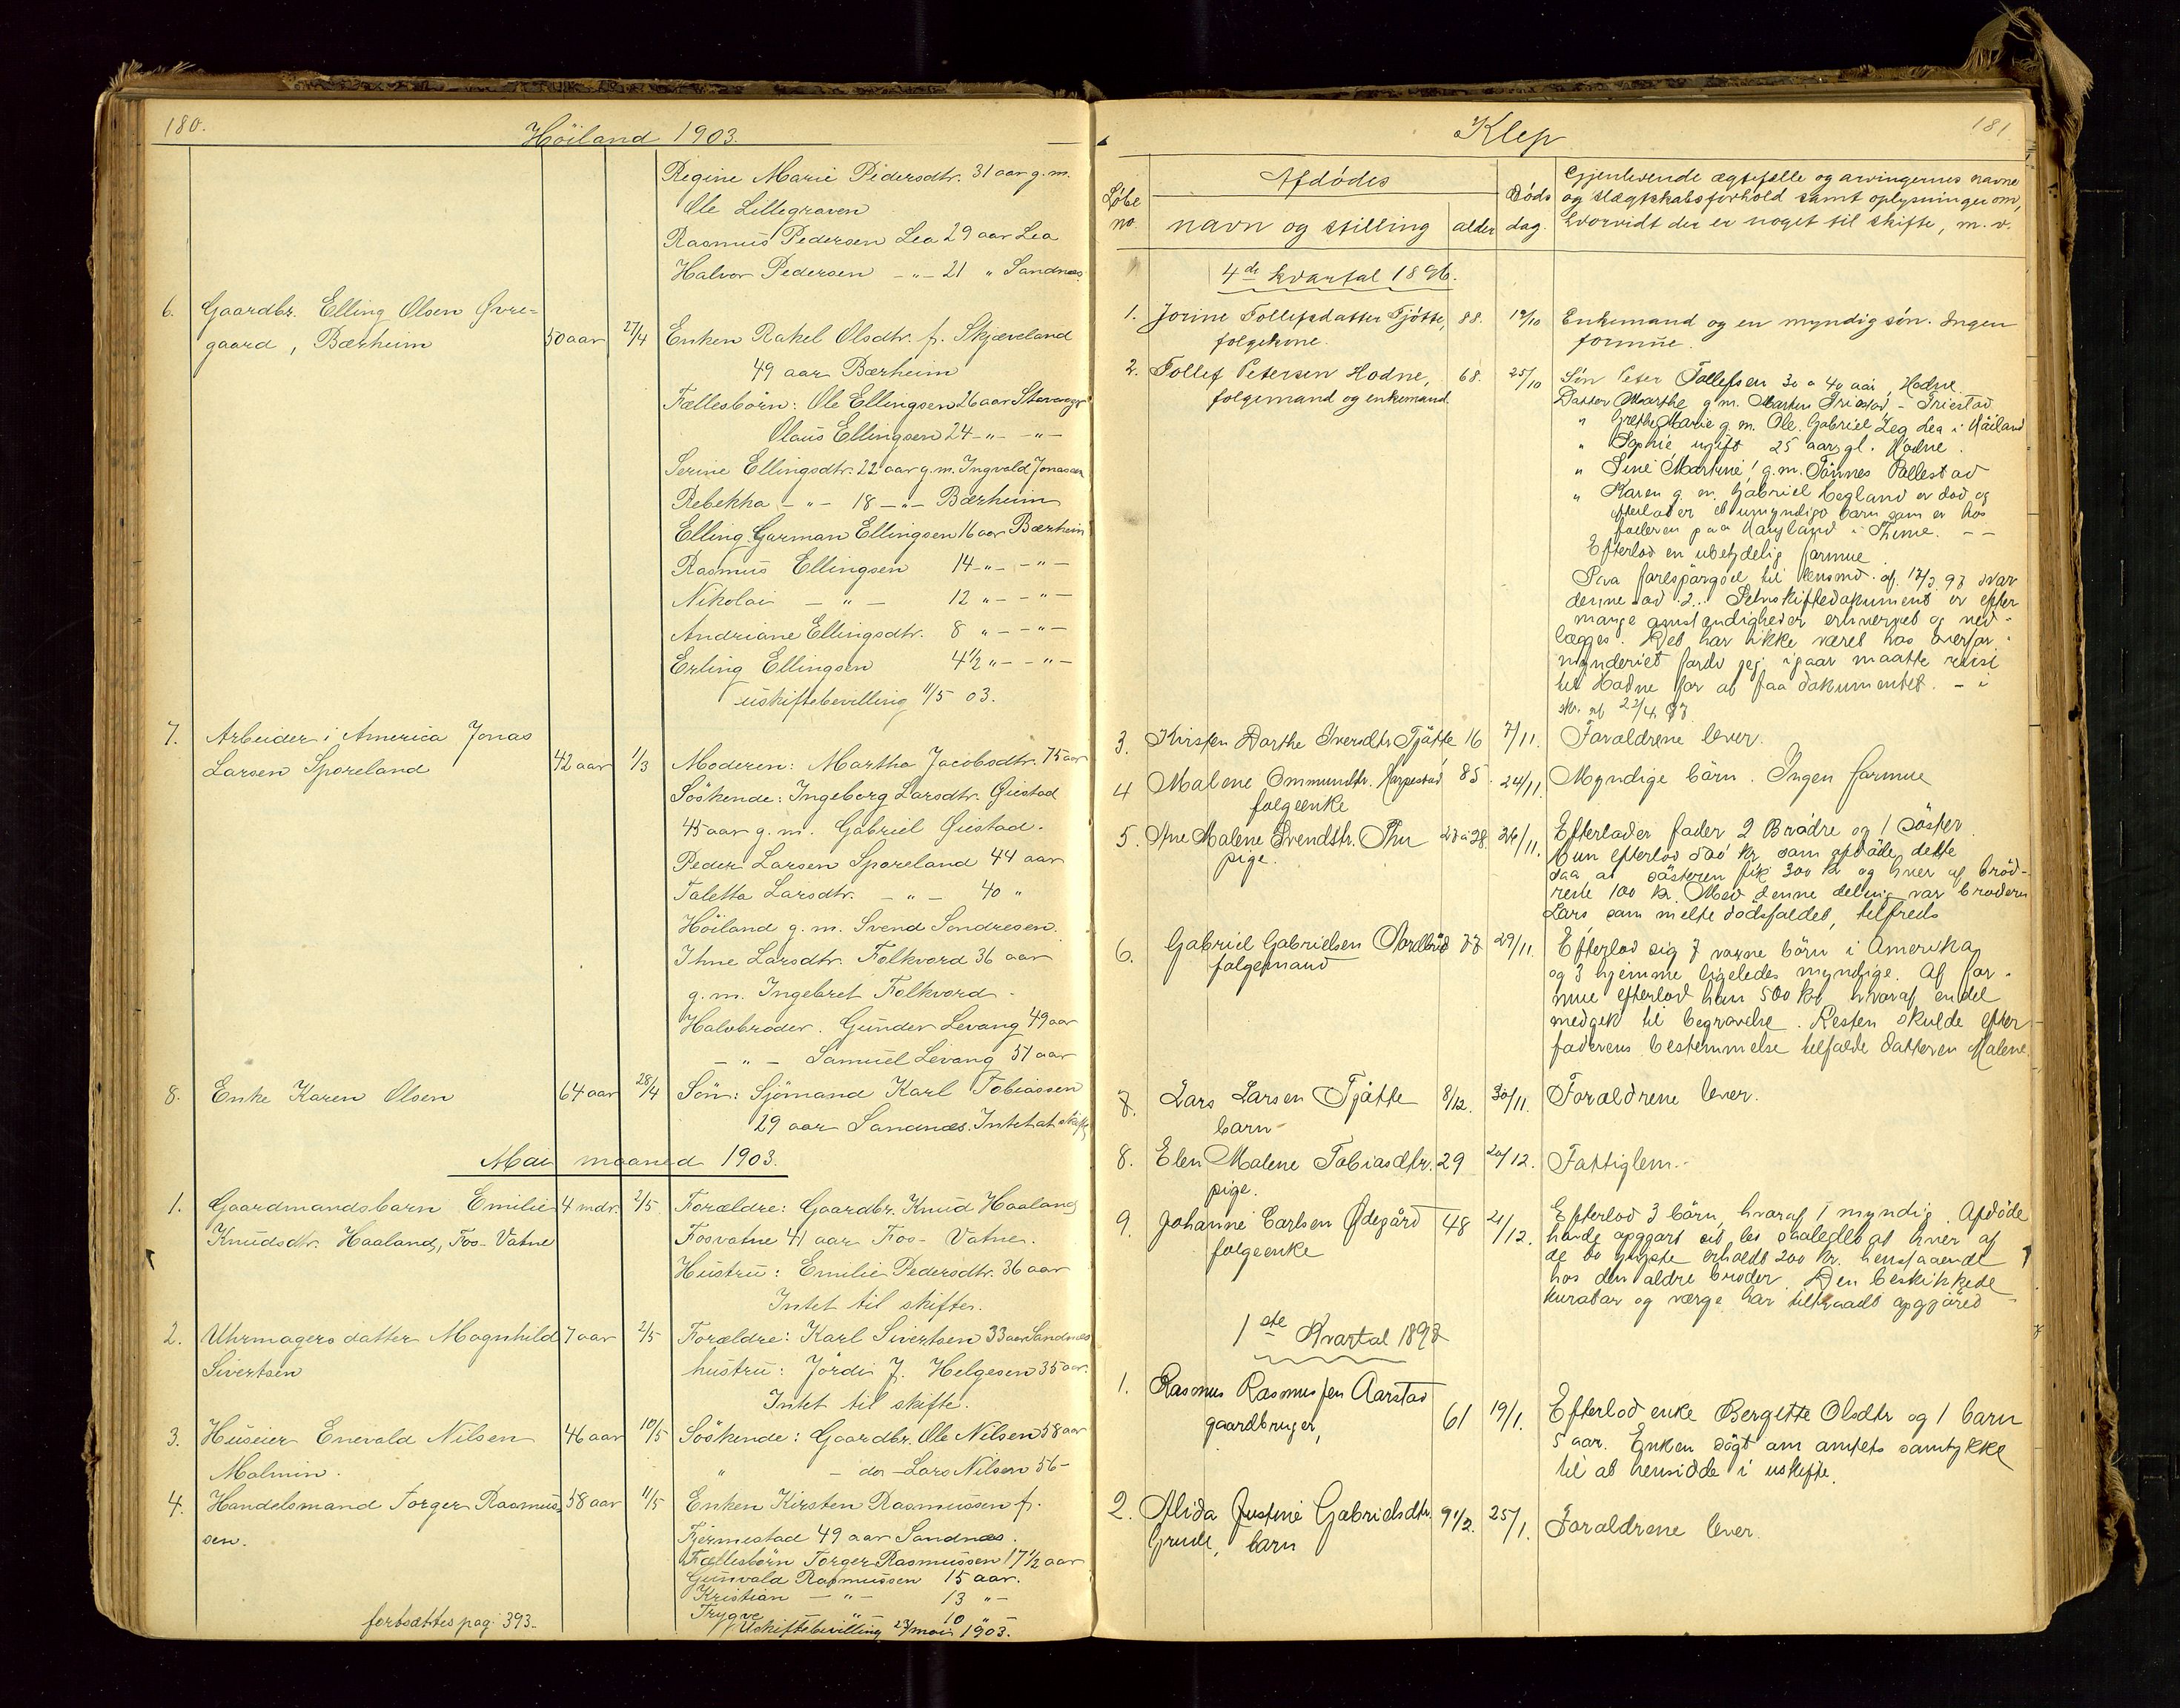 180.
Höiland 1903.
Regine Marie Pedersdtr. 31 aar g.m.
Ole Lillegraven
Rasmus Pedersen Lea 29 aar Lea
Halvor Pedersen -„- 21 „ Sandnes.
6. Gaardbr. Elling Olsen Øvre=
gaard, Bærheim 50 aar 27/4 Enken Rakel Olsdtr. f. Skjæveland
49 aar Bærheim
Fællesbörn: Ole Ellingsen 26 aar Stavanger
Olaus Ellingsen 24 -„- -„-
Serine Ellingsdtr. 22 aar g.m. Ingvald Jonassen
Rebekka -„- 18 -„- Bærheim
Elling Garman Ellingsen 16 aar Bærheim
Rasmus Ellingsen 14 -„- -„-
Nikolai -„- 12 „- -„-
Andriane Ellingsdtr. 8 „- -„-
Erling Ellingsen 4 1/2 „- -„-
uskiftebevilling 11/5 03.
7. Arbeider i America Jonas
Larsen Sporeland 42 aar 1/3 Moderen: Martha Jacobsdtr. 75 aar
Söskende: Ingeborg Larsdtr. Øiestad
45 aar g.m. Gabriel Øiestad.
Peder Larsen Sporeland 44 aar
Taletta Larsdtr. -„- 40 „
Höiland g.m. Svend Sondresen.
Thne Larsdtr. Folkvord 36 aar
g.m. Ingebret Folkvord -
Halvbroder. Gunder Levang 49 aar
-„- Samuel Levang 51 aar
8. Enke Karen Olsen 64 aar 28/4 Sön: Sjömand Karl Tobiassen
29 aar Sandnæs. Intet at skifte
Mai maaned 1903.
1. Gaardmandsbarn Emilie 4 mdr. 2/5 Forældre: Gaardbr. Knud Haaland
Knudsdtr. Haaland, Fos-Vatne Fosvatne 41 aar Fos-Vatne.
Hustru: Emilie Pedersdtr. 36 aar
Intet til skifte.
2. Uhrmagers datter Magnhild 7 aar 2/5 Forældre: Karl Sivertsen 33 aar Sandnes
Sivertsen hustru: Jördis J. Helgesen 35 aar.
Intet til skifte.
3. Huseier Enevald Nilsen 46 aar 10/5 Söskende: Gaardbr. Ole Nilsen 58 aar
Malmin. „ - do - Lars Nilsen 56 -
4. Handelsmand Torger Rasmus= 58 aar 11/5 Enken Kirsten Rasmussen f.
sen. Fjermestad 49 aar Sandnæs.
Fællesbörn Torger Rasmussen 17 1/2 aar
Gunvald Rasmussen 15 aar.
Kristian -„- 13 „-
Trygve -„- 10 „-
Uskiftebevilling 23/mai 1903.
fortsættes pag. 393.
181
Klep
Løbe no.
Afdödes
navn og stilling alder
Döds dag.
Gjenlevende ægtefælle og arvingernes navne
og slægtskabsforhold samt oplysninger om,
hvorvidt der er noget til skifte, m. v.
4de kvartal 1896.
1. Jorine Tollefsdatter Tjötte, 88. 19/10 Enkemand og en myndig sön. Ingen
folgekone. formue.
2. Tollef Petersen Hodne, 68. 25/10 Sön Peter Tollefsen 30 a 40 aar, Hodne.
folgemand og enkemand. Datter Marthe g.m. Martin Friestad - Friestad
„ Grethe Marie g.m. Ole Gabriel Leg Lea i Höiland
„ Sophie ugift 25 aar gl. Hodne.
„ Sine Martine g.m. Tönnes Pollestad
„ Karen g.m. Gabriel er död og
efterlader et umyndigt barn som er hos
faderen paa i Thime. --
Efterlod en ubetydelig formue
Paa forespörgsel til lensmd. af 12/3 97 svar
denne at Selvskiftedokument er efter
mange omstændigheder erhvervet og ved-
lægges. Det har ikke været hos overfor-
mynderiet fordi jeg igaar maatte reise
til Hodne for at faa dokumentet. - i
skr. af 22/4 97.
3. Kirsten Dorthe Iversdtr. Tjötte 16 7/11. Forældrene lever.
4 Malene Ommundtr. Horpestad 85. 24/11. Myndige börn. Ingen formue
folgeenke
5. Ane Malene Svendstr. Thu 27 a 28. 26/11. Efterlader fader 2 Brödre og 1 söster.
pige. Hun efterlod 500 kr som delte
saa at sösteren fik 300 kr og hver af bröd-
rene 100 kr. Med denne deling var broderen
Lars som meldte dödsfaldet, tilfreds
6. Gabriel Gabrielsen Nordbrö 77 29/11. Efterlod sig 7 voxne börn i Amerika
folgemand og 3 hjemme ligeledes myndige. Af for-
mue efterlod han 500 kr hvoraf endel
medgik til begravelse. Resten skulde efter
faderens bestemmelse tilfalde datteren Malene.
7. Lars Larsen Tjötte 8/12. 30/11. Forældrene lever.
barn
8. Elen Malene Tobiasdtr. 29 24/12. Fattiglem.-
pige.
9. Johanne Carlsen Ødegård 48 21/12. Efterlod 3 börn, hvoraf 1 myndig. Afdöde
folgeenke havde opgjort sit bo saaledes at hver af
de to yngste erholdt 200 kr. henstaaende
hos den ældre broder. Den beskikkede
kurator og værge har tiltraadt opgjöret -
1ste Kvartal 1897
1. Rasmus Rasmussen Aarstad
gaardbruger, 61 19/1. Efterlod enke Bergitte Olsdtr og 1 barn
5 aar. Enken sögt om amtets samtykke
til at hensidde i uskifte.
2. Alida Justine Gabrielsdtr. 9 1/2. 25/1. Forældrene lever.
Grude, barn